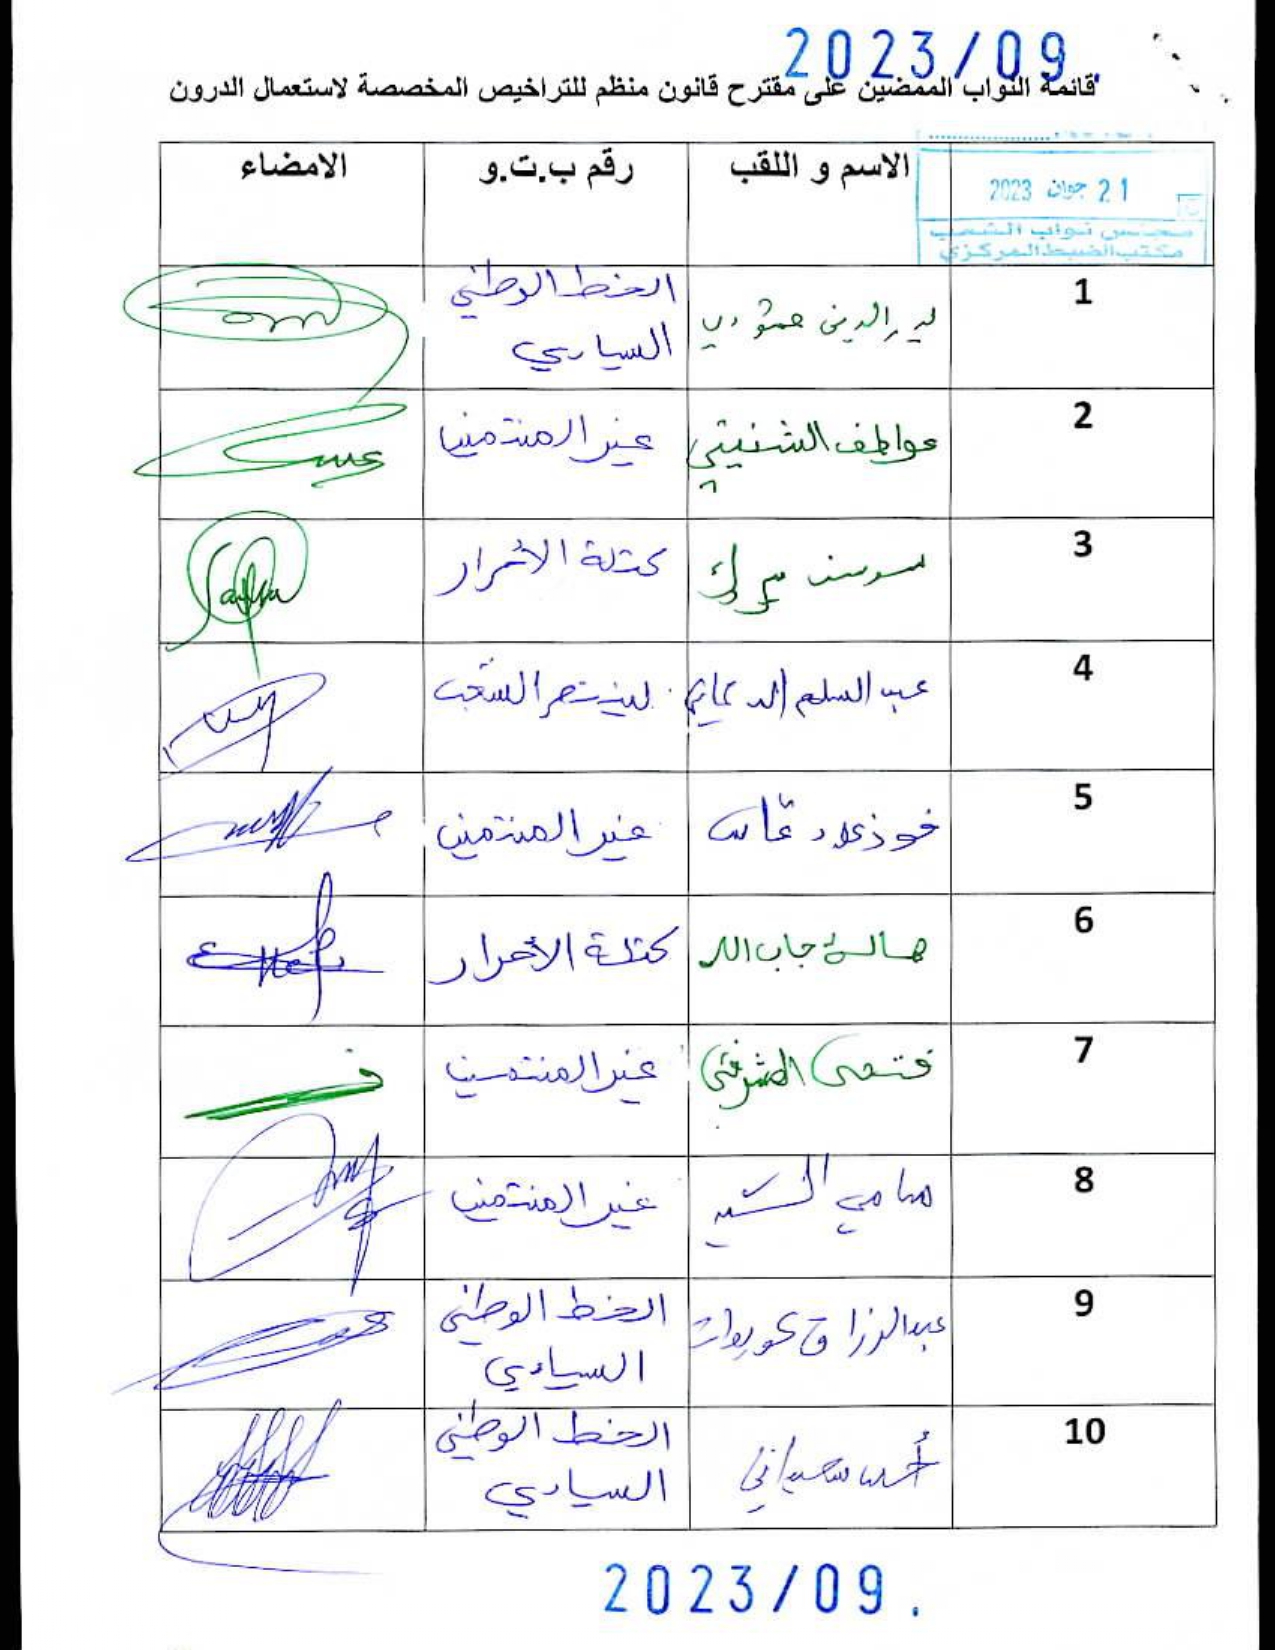 2023/09.
قائمة النواب الممضين على مقترح قانون منظم للتراخيص المخصصة لاستعمال الدرون
21 جوان 2023
مجلس نواب الشعب
مكتب الضبط المركزي
الاسم و اللقب رقم ب.ت.و الامضاء
1 الخط الوطني
السيادي
2 عواطف الشنيتي غير المنتمين
3 سوسن مبروك كتلة الأحرار
4 عبد السلام الدحماني لينتصر الشعب
5 فوزي دعاس غير المنتمين
6 هالة جاب الله كتلة الأحرار
7 فتحي المشرقي غير المنتمين
8 سامي السيد غير المنتمين
9 عبد الرزاق عويدات الخط الوطني
السيادي
10 أحمد سعيداني الخط الوطني
السيادي
2023/09.